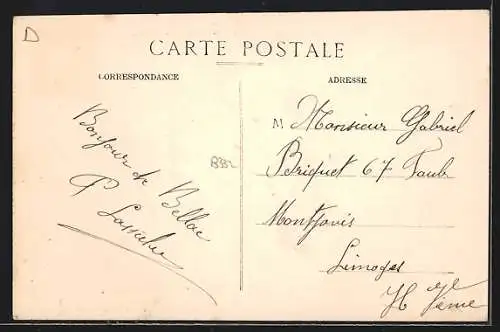 D
CARTE POSTALE
CORRESPONDANCE
ADRESSE
Bonjour de Bellac
P
B332
M Monsieur Gabriel
Briquet 67 Faub
Montjovis
Limoges
Hte Vienne